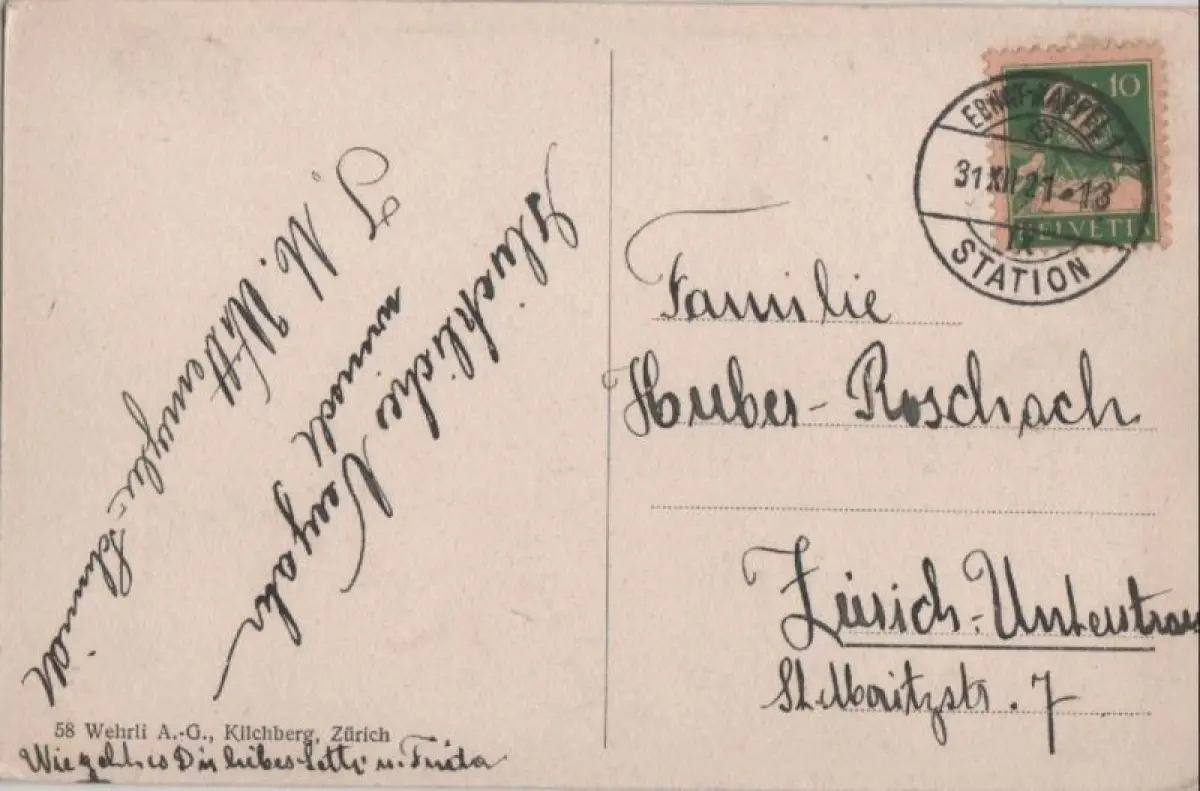 Glückliches
Neujahr
wünscht
J. M. Wittenwyler-Schmidt
58 Wehrli A.-G., Kilchberg, Zürich
Wie geht es Dir liebes u. Frida
10
HELVETIA
EBNAT-KAPPEL
31 XII 21-13
STATION
Familie
Huber-Roschach
Zürich-Unterstrass
St. Moritzstr. 7